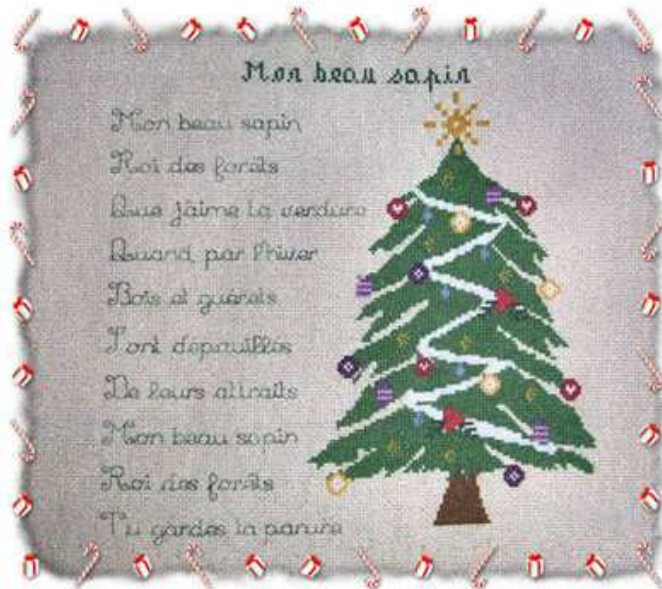 Mon beau sapin
Mon beau sapin
Roi des forêts
Que j'aime ta verdure
Quand, par l'hiver
Bois et guérets
Sont dépouillés
De leurs attraits
Mon beau sapin
Roi des forêts
Tu gardes ta parure